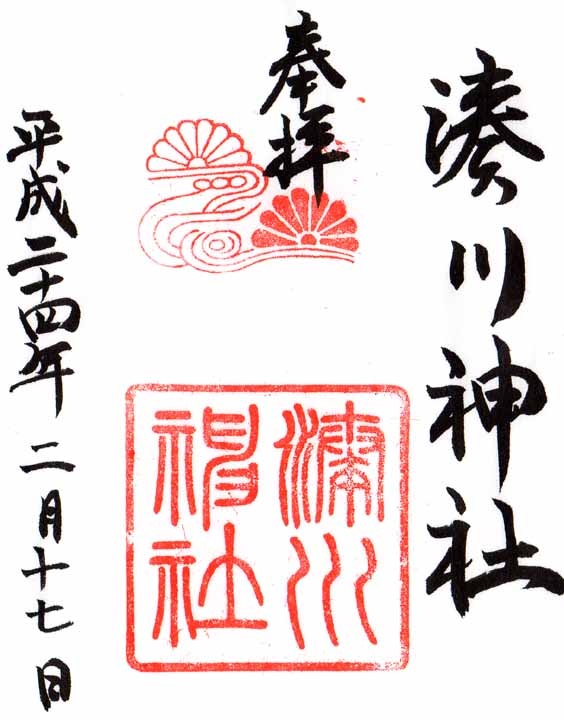 湊川神社
奉拝
湊川
神社
平成二十四年二月十七日